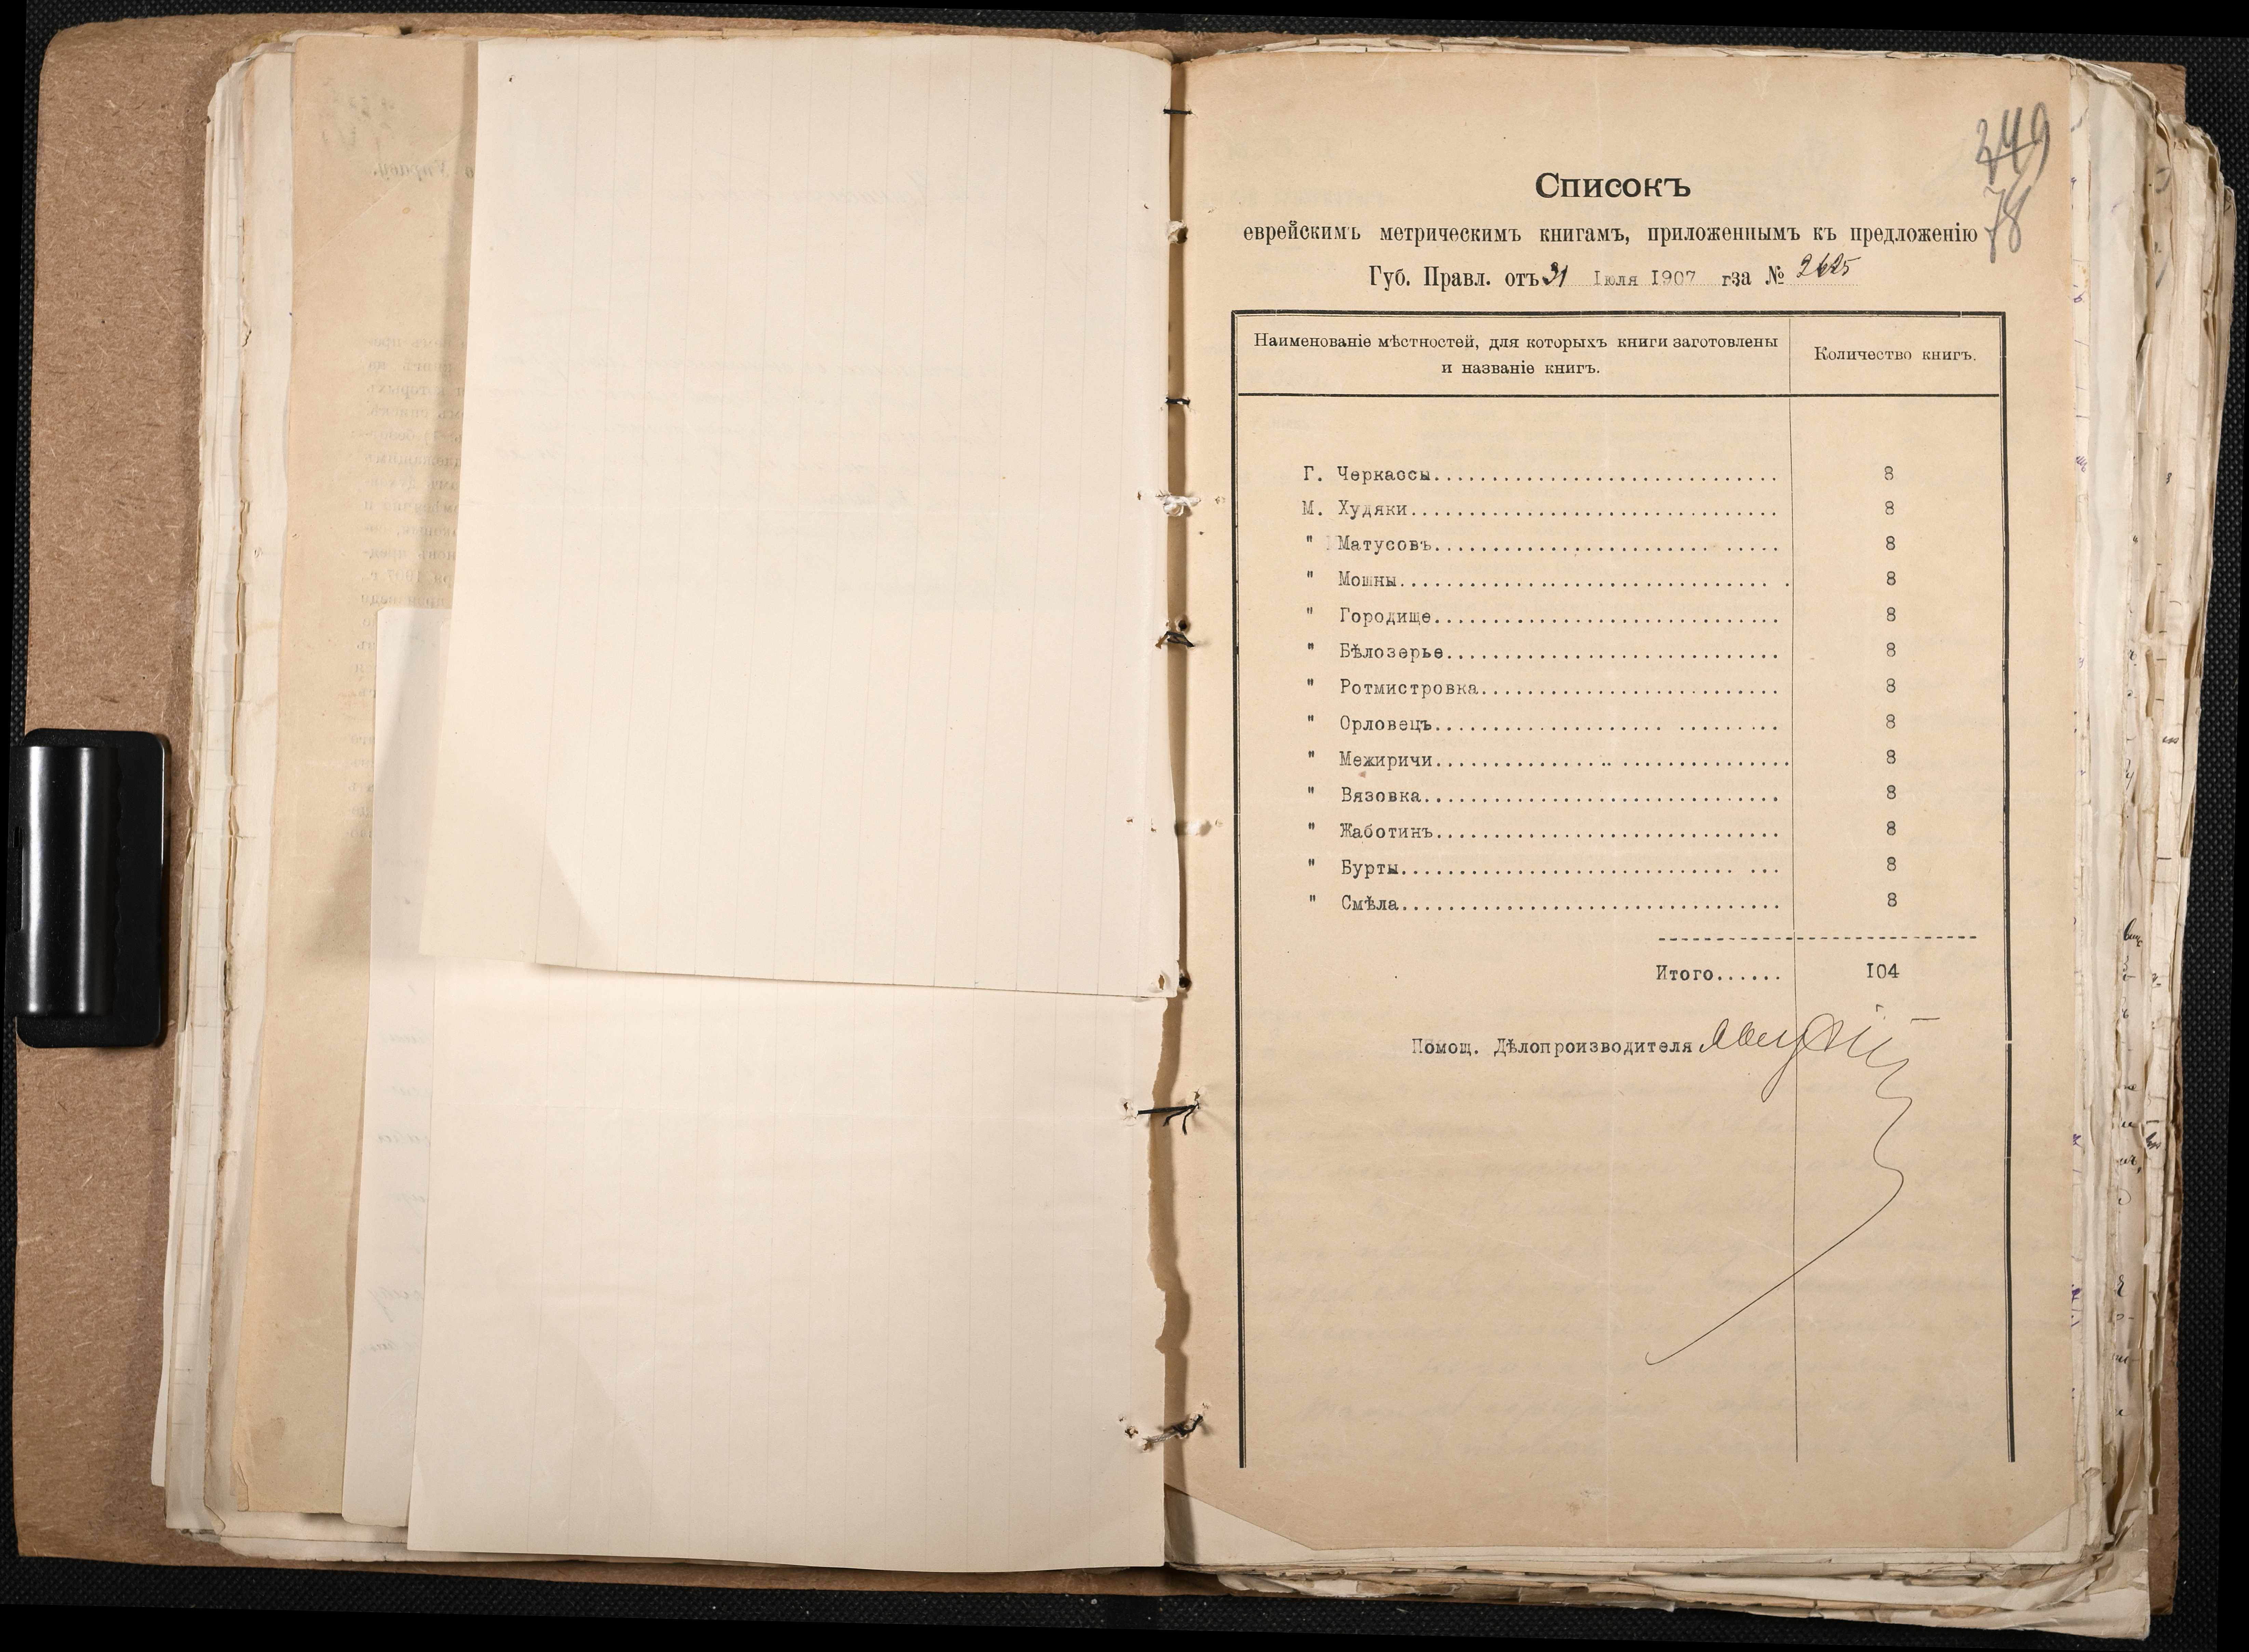 249
78
Списокъ
еврейскимъ метрическимъ книгамъ, приложеннымъ къ предложенію
Губ. Правл. отъ 31 Іюля 1907 г за № 2625
Наименованіе мѣстностей, для которыхъ книги заготовлены
и названіе книгъ.
Количество книгъ.
Г. Черкассы.............................. 8
М. Худяки................................ 8
" Матусовъ............................. 8
" Мошны................................. 8
" Городище.............................. 8
" Бѣлозерье............................. 8
" Ротмистровка.......................... 8
" Орловецъ............................. 8
" Межиричи.............................. 8
" Вязовка............................... 8
" Жаботинъ.............................. 8
" Бурты................................ 8
" Смѣла................................. 8
Итого...... 104
Помощ. Дѣлопроизводителя